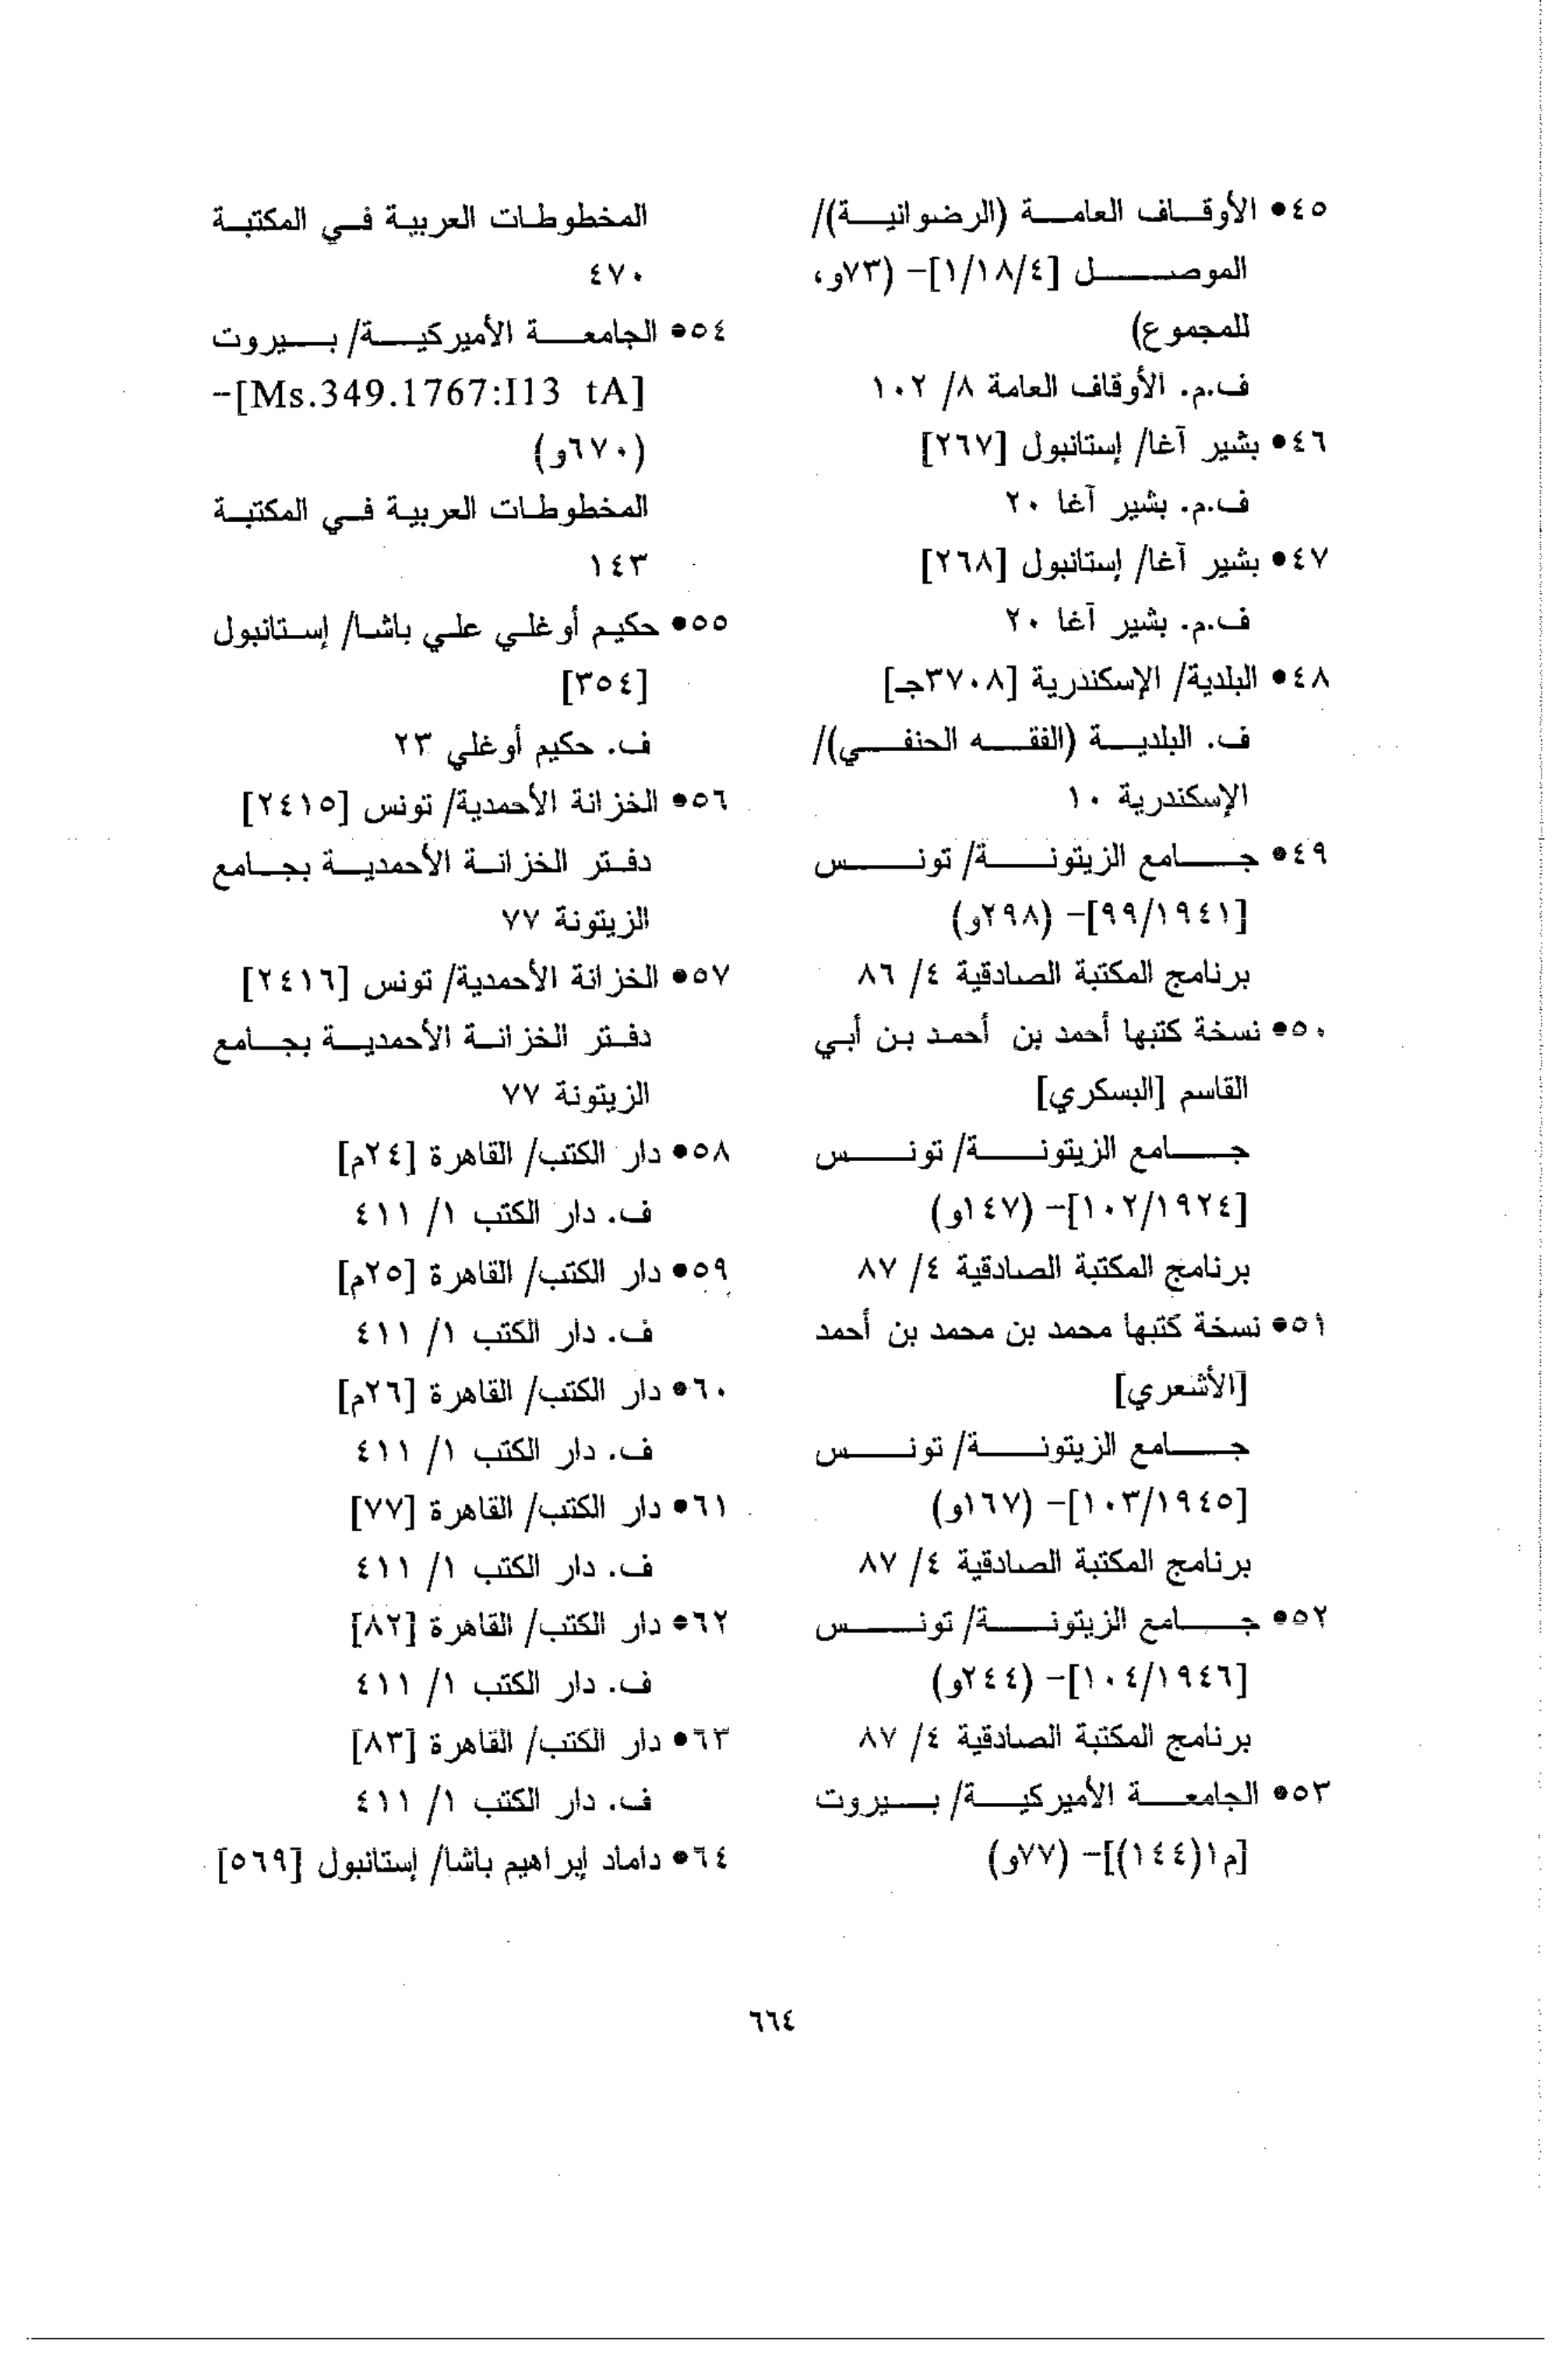 ٤٥• الأوقاف العامة (الرضوانية)/
الموصل [١/١٨/٤]- (٧٣و،
للمجموع)
ف.م. الأوقاف العامة ٨/ ١٠٢
٤٦• بشير آغا/ إستانبول [٢٦٧]
ف.م. بشير آغا ٢٠
٤٧• بشير آغا/ إستانبول [٢٦٨]
ف.م. بشير آغا ٢٠
٤٨• البلدية/ الإسكندرية [٣٧٠٨جـ]
ف. البلدية (الفقه الحنفي)/
الإسكندرية ١٠
٤٩• جامع الزيتونة/ تونس
[٩٩/١٩٤١]- (٢٩٨و)
برنامج المكتبة الصادقية ٤/ ٨٦
٥٠• نسخة كتبها أحمد بن أحمد بن أبي
القاسم [البسكري]
جامع الزيتونة/ تونس
[١٠٢/١٩٢٤]- (١٤٧و)
برنامج المكتبة الصادقية ٤/ ٨٧
٥١• نسخة كتبها محمد بن محمد بن أحمد
[الأشعري]
جامع الزيتونة/ تونس
[١٠٣/١٩٤٥]- (١٦٧و)
برنامج المكتبة الصادقية ٤/ ٨٧
٥٢• جامع الزيتونة/ تونس
[١٠٤/١٩٤٦]- (٢٤٤و)
برنامج المكتبة الصادقية ٤/ ٨٧
٥٣• الجامعة الأميركية/ بيروت
[م١(١٤٤)]- (٧٧و)
المخطوطات العربية في المكتبة
٤٧٠
٥٤• الجامعة الأميركية/ بيروت
[Ms.349.1767:I13 tA]-
(٦٧٠و)
المخطوطات العربية في المكتبة
١٤٣
٥٥• حكيم أوغلي علي باشا/ إستانبول
[٣٥٤]
ف. حكيم أوغلي ٢٣
٥٦• الخزانة الأحمدية/ تونس [٢٤١٥]
دفتر الخزانة الأحمدية بجامع
الزيتونة ٧٧
٥٧• الخزانة الأحمدية/ تونس [٢٤١٦]
دفتر الخزانة الأحمدية بجامع
الزيتونة ٧٧
٥٨• دار الكتب/ القاهرة [٢٤م]
ف. دار الكتب ١/ ٤١١
٥٩• دار الكتب/ القاهرة [٢٥م]
ف. دار الكتب ١/ ٤١١
٦٠• دار الكتب/ القاهرة [٢٦م]
ف. دار الكتب ١/ ٤١١
٦١• دار الكتب/ القاهرة [٧٧]
ف. دار الكتب ١/ ٤١١
٦٢• دار الكتب/ القاهرة [٨٢]
ف. دار الكتب ١/ ٤١١
٦٣• دار الكتب/ القاهرة [٨٣]
ف. دار الكتب ١/ ٤١١
٦٤• داماد إبراهيم باشا/ إستانبول [٥٦٩]
٦٦٤